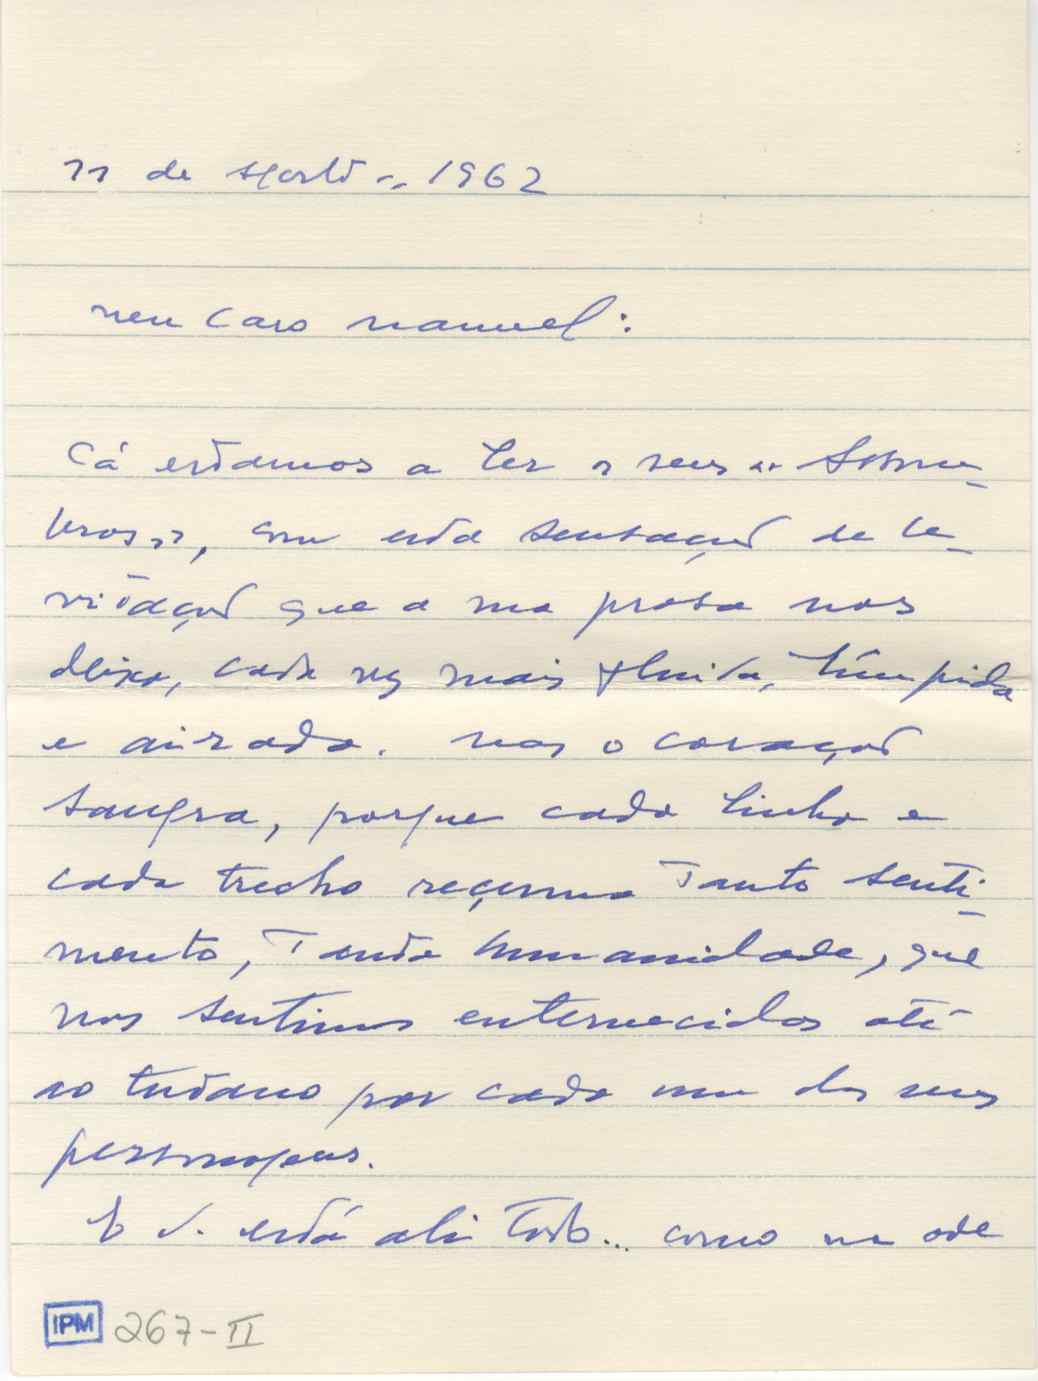 11 de agosto - 1962
meu caro manuel:
Cá estamos a ler os seus "Sobrei-
ros", com esta sensação de le-
vitação que a sua prosa nos
deixa, cada vez mais fluida, límpida
e airada. mas o coração
sangra, porque cada linha e
cada trecho reçuma Tanto senti-
mento, Tanta humanidade, que
nos sentimos enternecidos até
ao tutano por cada um dos seus
personagens.
E V. está ali Todo... como na ode
IPM 267-II